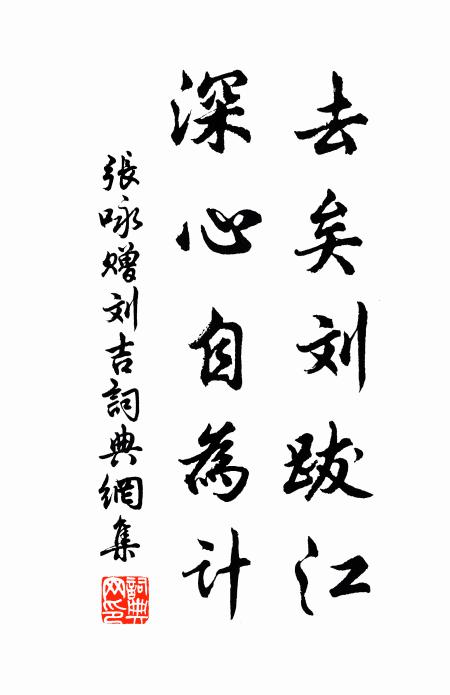 去矣刘跋江
深心自為计
張咏赠刘吉詞典網集
詞典网印